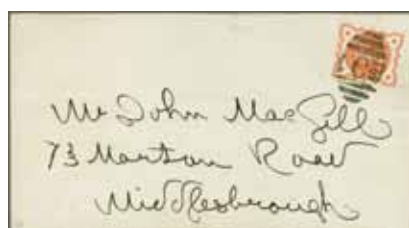 Mr John MacGill
73 Marton Road
Middlesbrough